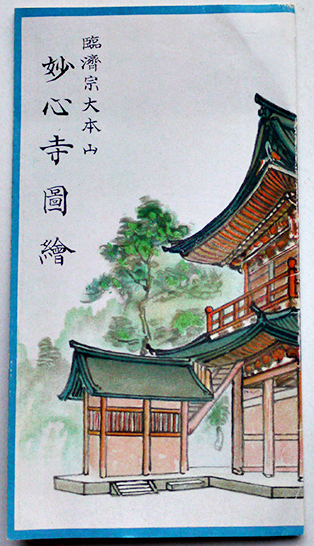 臨濟宗大本山
妙心寺圖繪